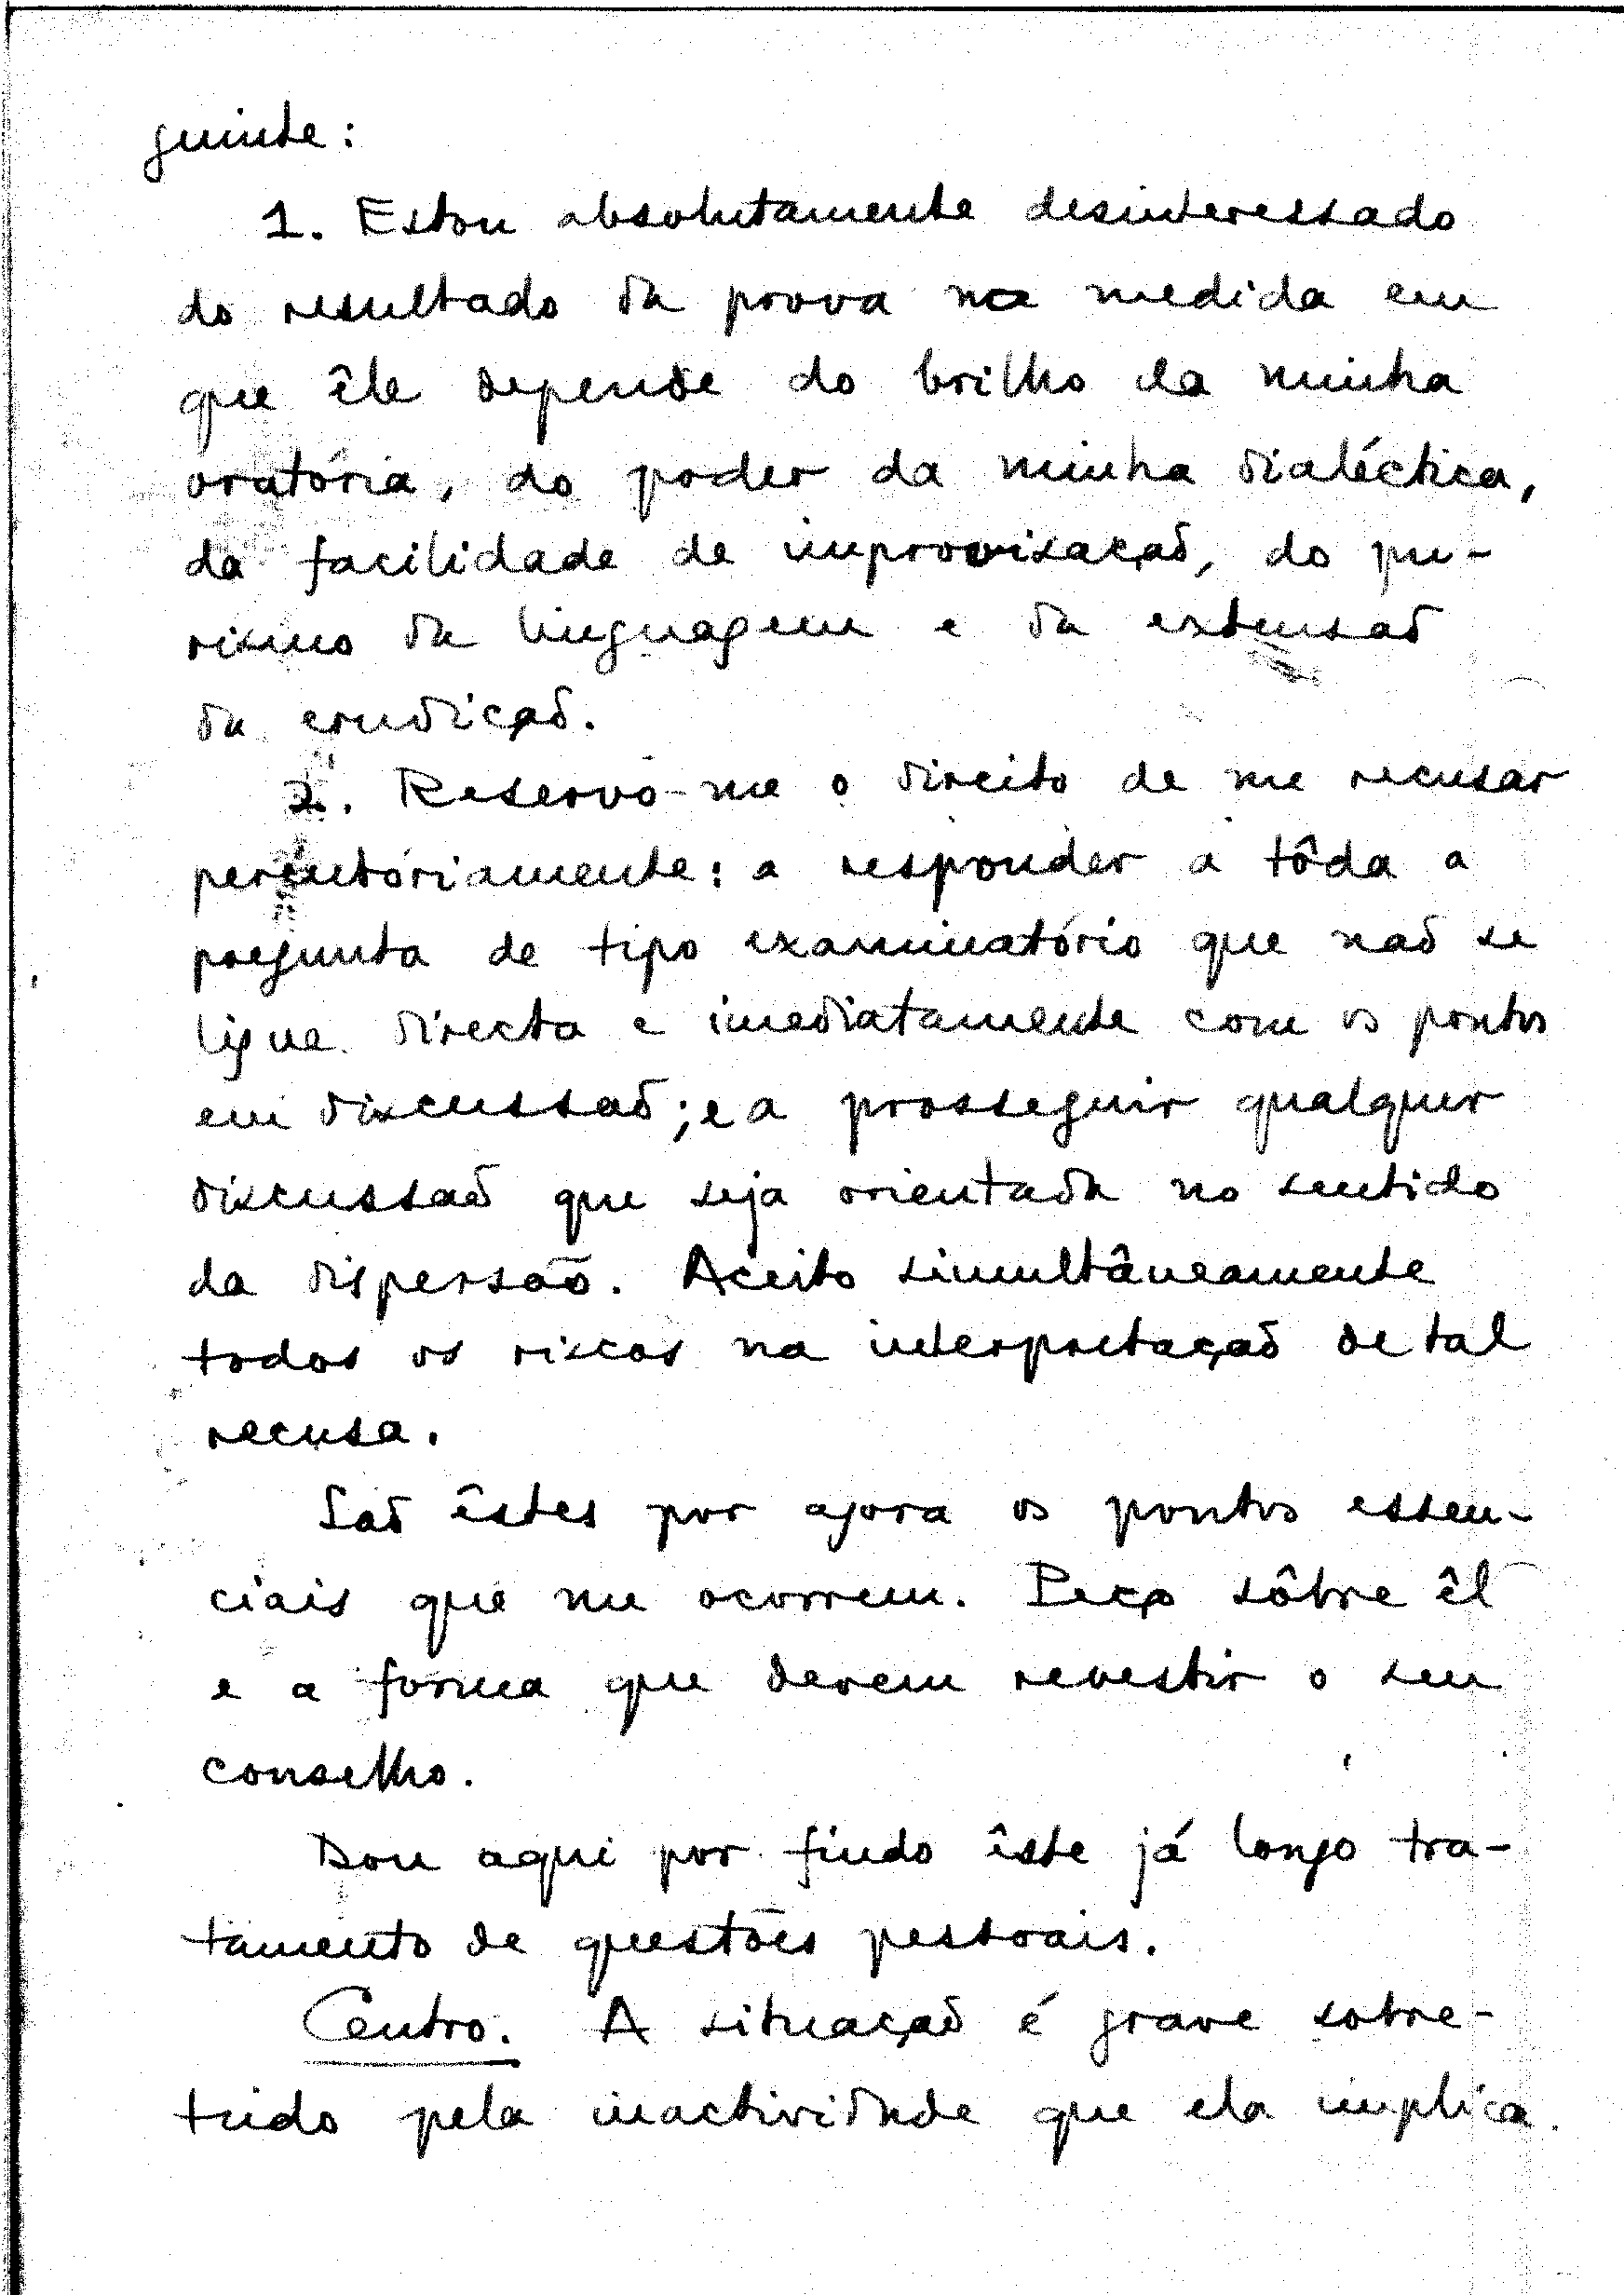 guinte:
1. Estou absolutamente desinteressado
do resultado da prova na medida em
que êle depende do brilho da minha
oratória, do poder da minha dialéctica,
da facilidade de improvisação, do pu-
rismo da linguagem e da extensão
da erudição.
2. Reservo-me o direito de me recusar
perentóriamente: a responder a tôda a
pregunta de tipo examinatório que não se
ligue directa e imediatamente com os pontos
em discussão; e a prosseguir qualquer
discussão que seja orientada no sentido
da dispersão. Aceito simultâneamente
todos os riscos na interpretação de tal
recusa.
São êstes por agora os pontos essen-
ciais que me ocorrem. Peço sôbre êl
e a forma que devem revestir o seu
conselho.
Dou aqui por findo êste já longo tra-
tamento de questões pessoais.
Centro. A situação é grave sobre-
tudo pela inactividade que ela implica.